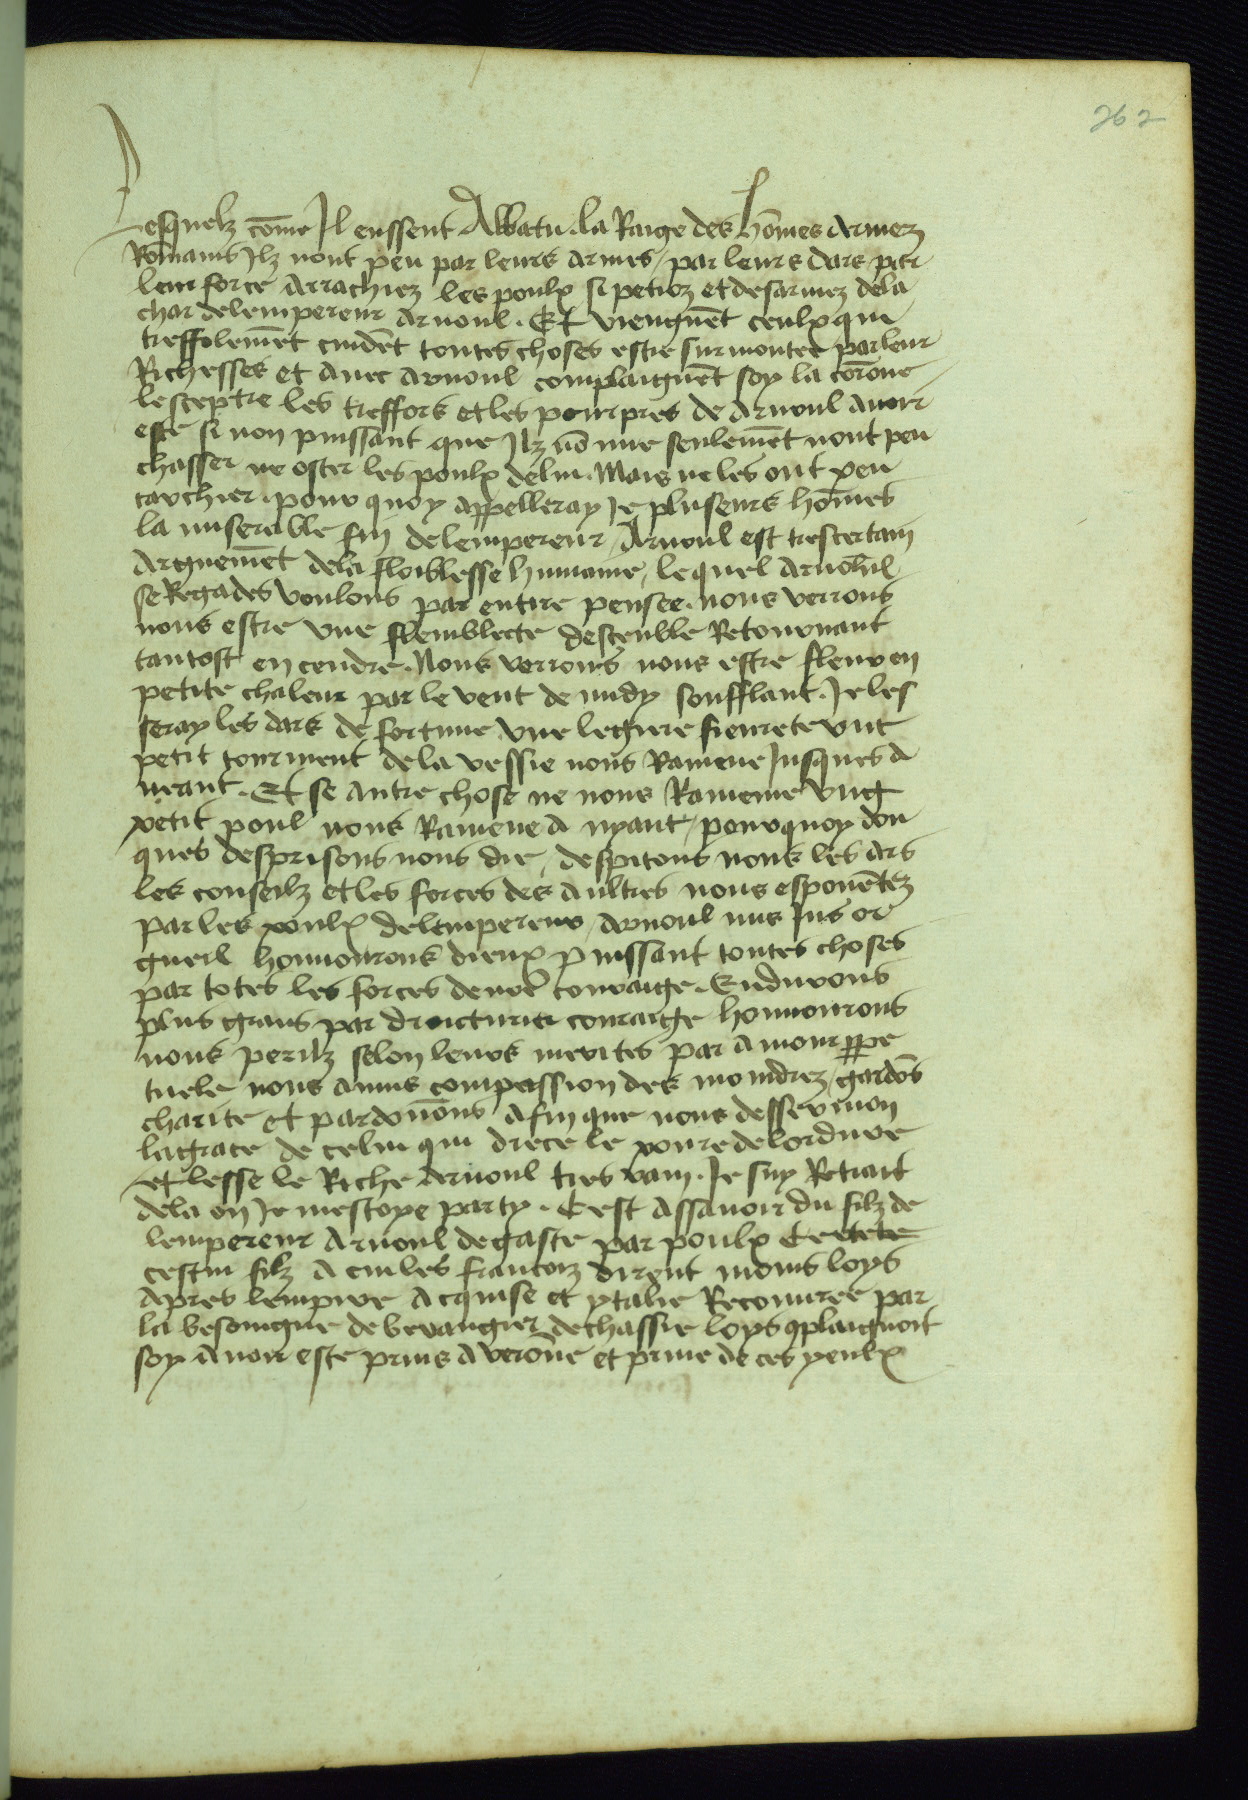 262
Lesquelz cōme Il eussent Abbatu. la Raige des hōmes Armez
Romains Ilz nont peu par leurs armes / par leurs dars / par
leur force Arrachiez les poulx si petiz et desarmez dela
char delempereur Arnoul. Et viengnēt ceulx que
treffolemēt cuidēt toutes choses estre surmontee par leur
Richesses et avec arnoul complaignēt soy la corōne
le sceptre les tressors et les pourpres de Arnoul avoir
este si non puissant que Ilz nō mie seulemēt nont peu
chasser ne oster les poulx delui. Mais ne les ont peu
touchier. pour quoy appelleray Je pluseurs hōmes
la miserable fin delempereur Arnoul est trescertain
Arguemēt dela floiblesse humaine / lequel Arnoul
se Regades voulons par entire pensee. nous verrons
nous estre vne flemblecte descenble Retournant
tantost en cendre. Nous verrons nous estre fleur en
petite chaleur par le vent de midy soufflant. Je les
seray les dars de fortune vne legiere fieurete vnt
petit tourment dela vessie nous Ramene Jusques a
neant. Et se autre chose ne nous Rameine vng
petit poul nous Ramene a nyant / pourquoy don
ques desprisons nous die / despitons nous les ars
les conseilz et les forces des aultres nous espouētez
par les poulx delempereur / arnoul mis Jus or
gueil honnourons dieux puissant toutes choses
par totes les forces de nrē couraige. Endurons
plus grans par droicturier couraige honnourons
nous perilz selon leurs merites par amour ppe
tuele nous aiuns compassion des moindrez / gardōs
charite et pardonōns afin que nous desservion
la grace de celui qui drece le poure delordure
et lesse le Riche arnoul tres vain. Je suy Retrait
dela ou Je mestoye party. Cest assavoir du filz de
lempereur Arnoul degaste par poulx
cestui filz a cui les francoiz dirent moins loys
Apres lempire Acquise et ytalie Recouuree par
la besoingne de berangier dechassie loys cplaignoit
soy avoir este prins a verōne et prive de ces yeulx